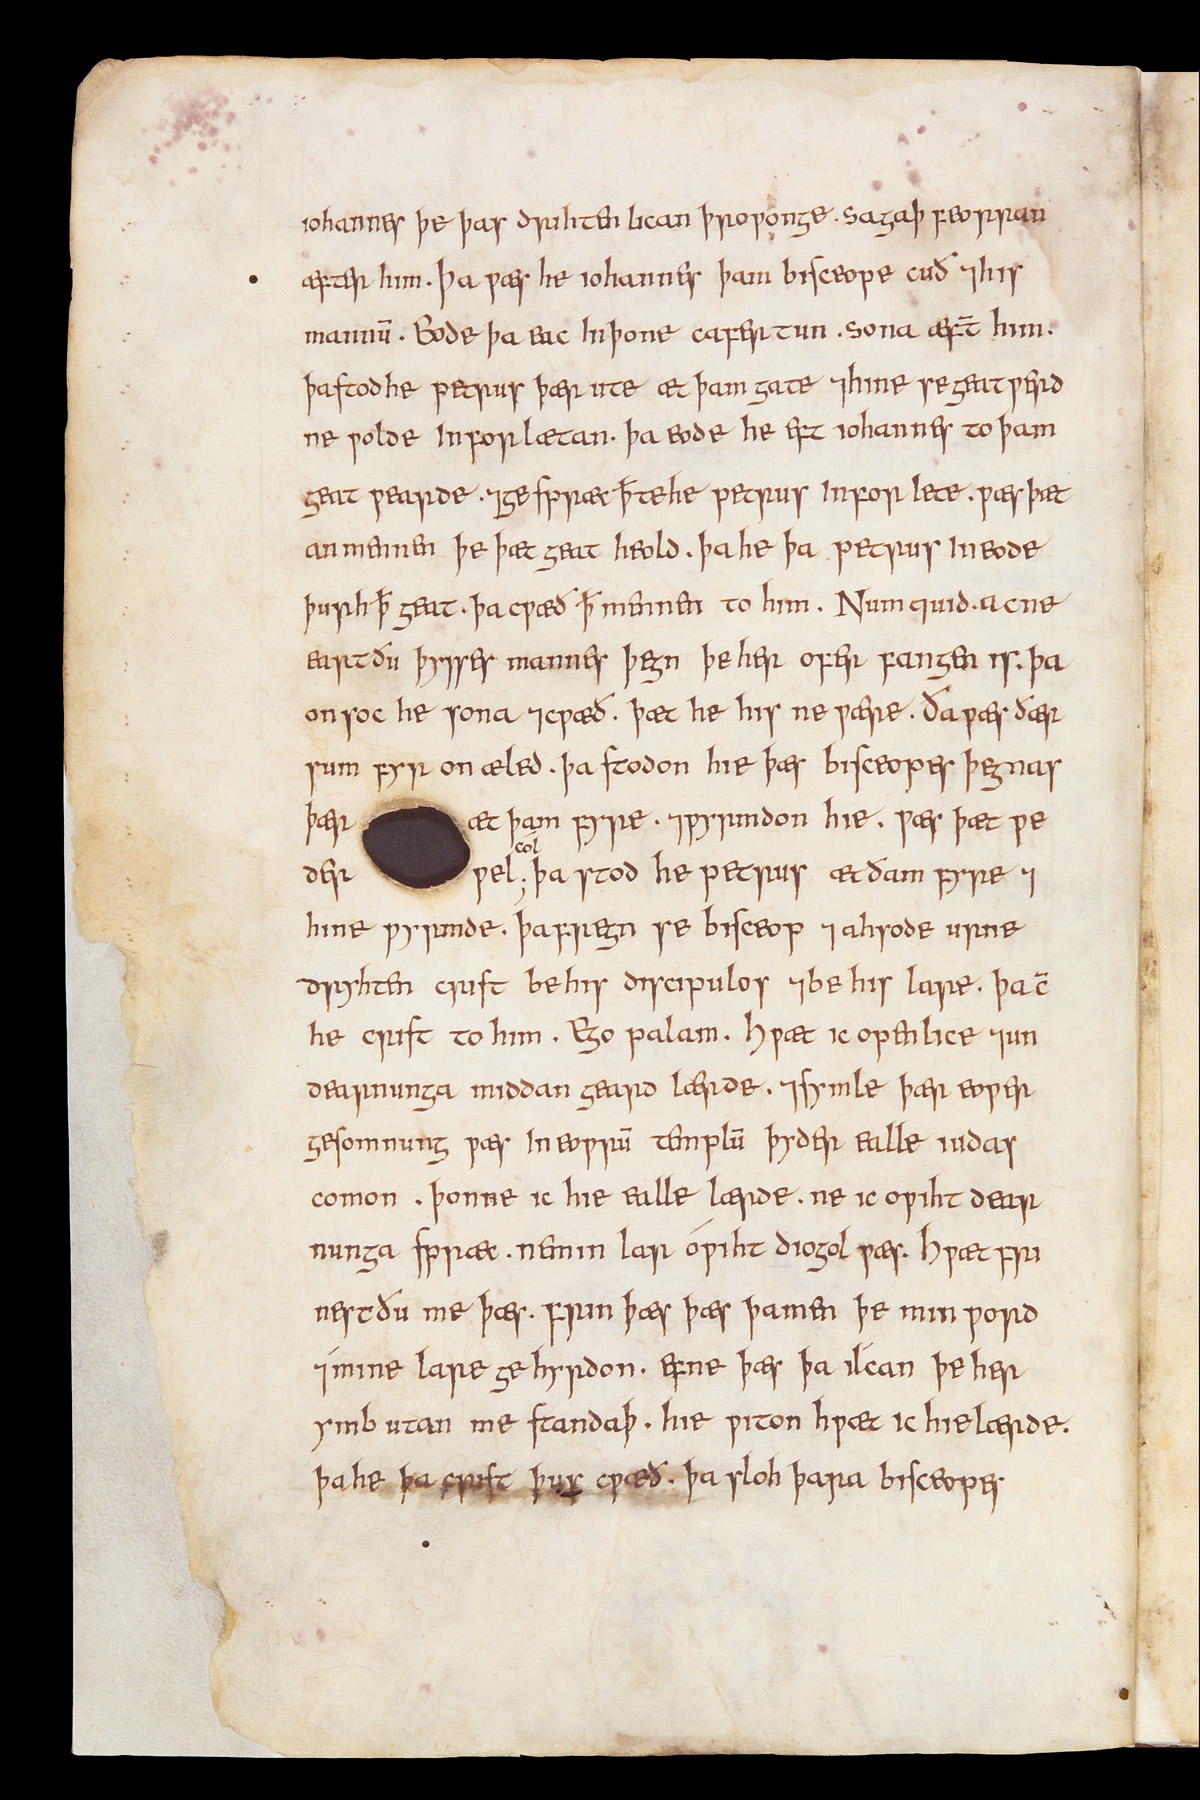 iohannes þe þas drihtenlican þroƿonge. sagaþ feorran
æfter him. þa ƿæs he iohannes þam bisceope cuð ⁊his
mannū. Eode þa eac in þone cafertun. sona æfť him.
þa stod he petrus þær ute æt þam gate ⁊hine se geatƿeard
ne ƿolde in forlætan. þa eode he eft iohannes to þam
geatƿearde. ⁊gespræc ꝥte he petrus in forlete. ƿæs þæt
an mennen þe þæt geat heold. þa he þa petrus in eode
þurh ꝥ geat. þa cƿæð ꝥ mennen to him. Numquid. ac ne
eart ðu þysses mannes þegn þe her ofer fangen is. þa
onsoc he sona ⁊cƿæð. þæt he his ne ƿære. ða ƿæs ðær
sum fyr onæled. þa stodon hie þæs bisceopes þegnas
þær æt þam fyre. ⁊ƿyrmdon hie. ƿæs þæt ƿe
der ƿel col; þa stod he petrus æt ðam fyre ⁊
hine ƿyrmde. þa frægn se bisceop ⁊ahsode urne
dryhten crist be his discipulos ⁊be his lare. þa c̄
he crist to him. Ego palam. Hƿæt ic openlice ⁊un
dearnunga middangeard lærde. ⁊symle þær eoƿer
gesomnung ƿæs in eoƿrū templū þyder ealle iudas
comon. þonne ic hie ealle lærde. ne ic oƿiht dear
nunga spræc. ne min lar óƿiht diogol ƿæs. Hƿæt fri
nest ðu me þæs. frin þæs þæs þa men þe min ƿord
⁊mine lare gehyrdon. efne þæs þa ilcan þe her
ymbutan me standaþ. hie ƿiton hƿæt ic hie lærde.
þa he þa crist þus cƿæð. þa sloh þara bisceopes